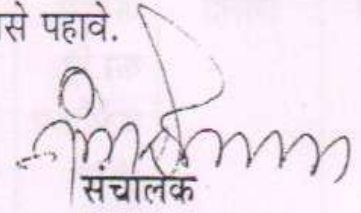 से पहावे.
संचालक